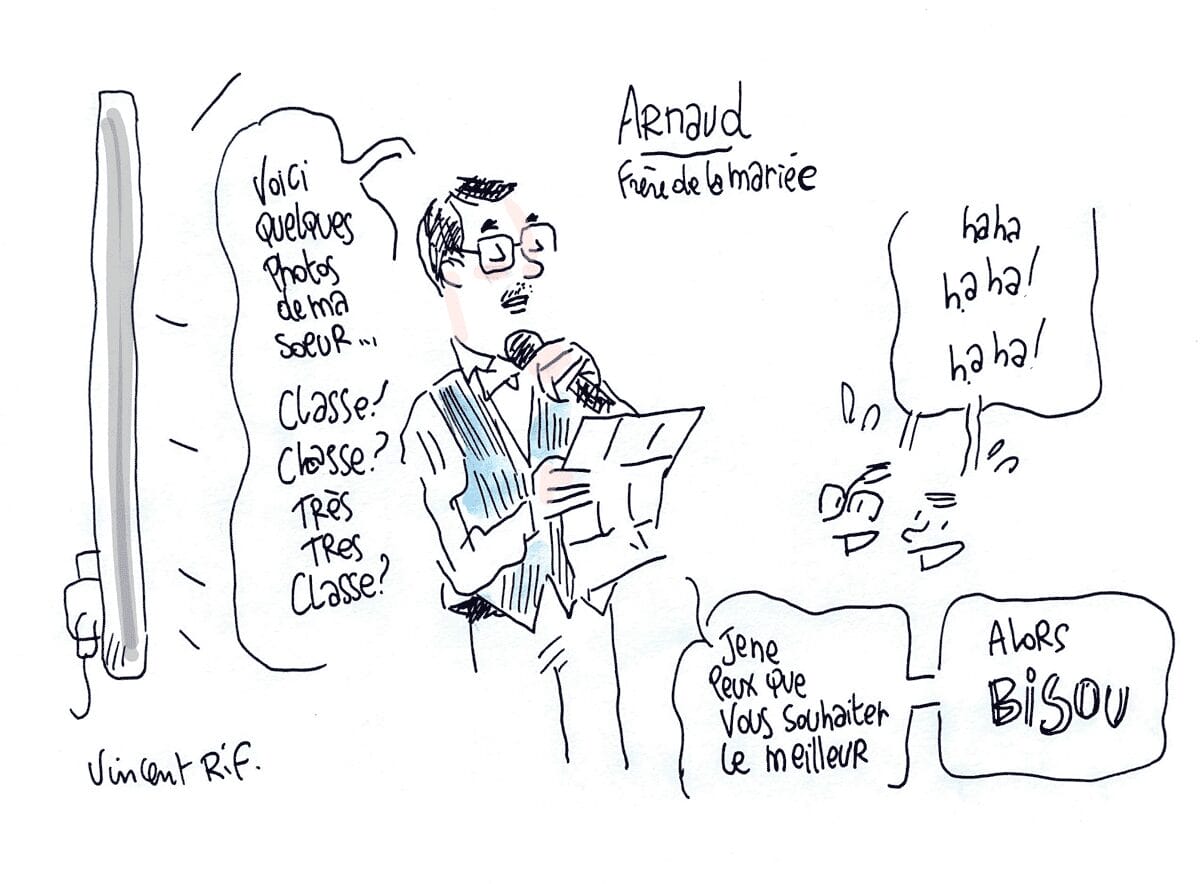 Arnaud
Frère de la mariée
Voici
quelques
photos
de ma
soeur...
Classe!
Classe?
Très
Tres
Classe?
haha
ha ha!
ha ha!
Je ne
peux que
vous souhaiter
le meilleur
Alors
Bisou
Vincent R.i.F.